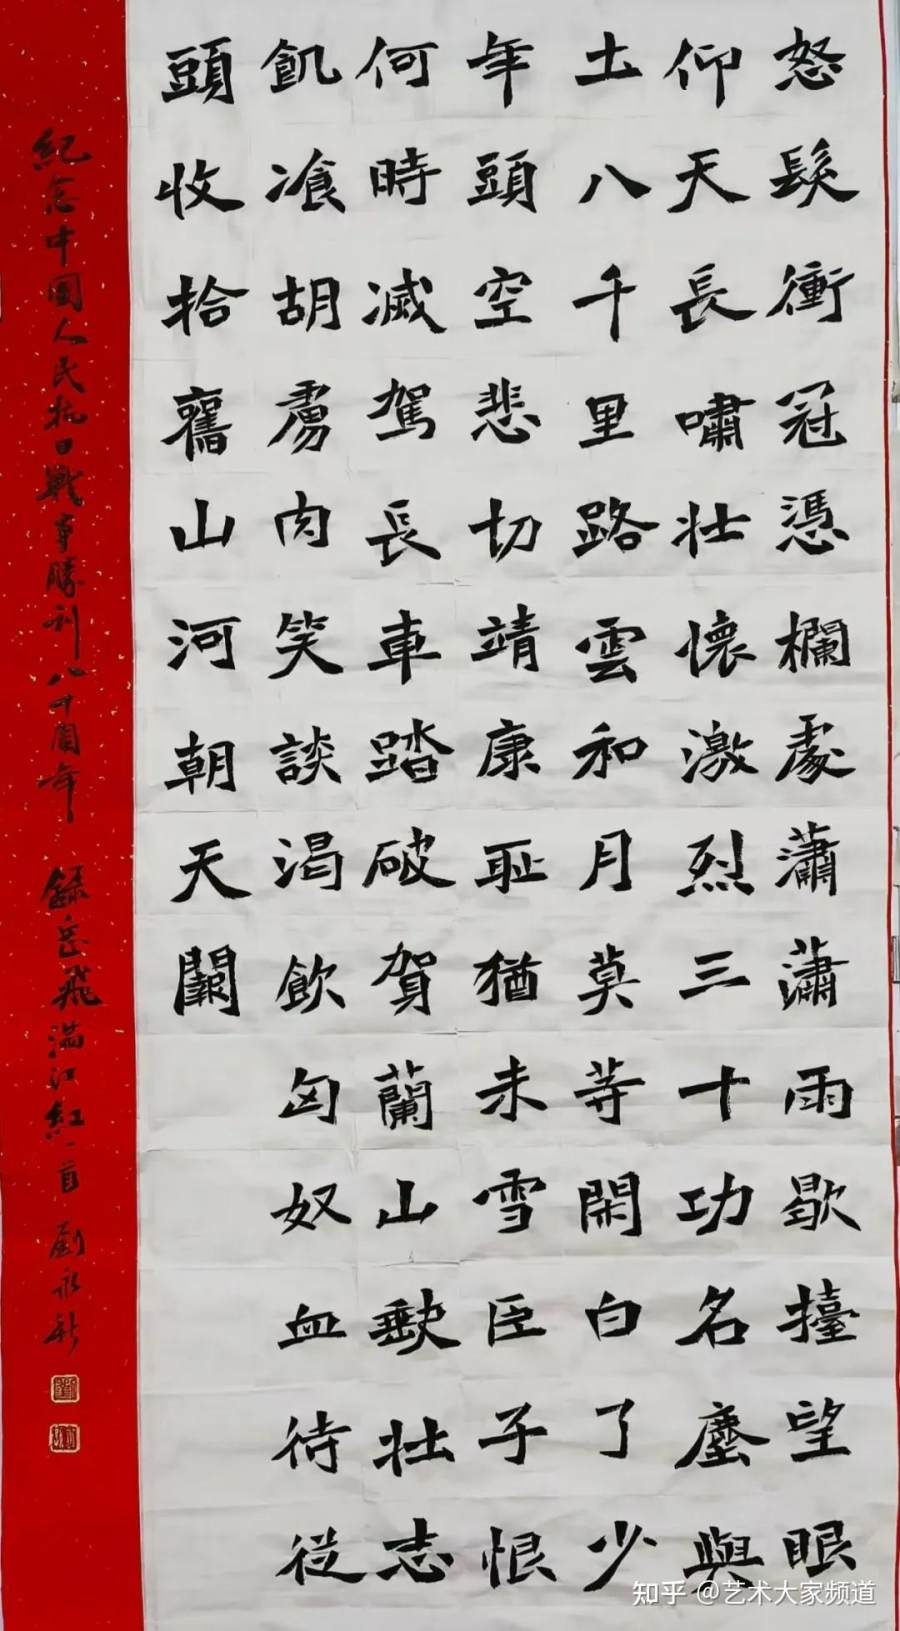 怒髮衝冠憑欄處瀟瀟雨歇擡望眼
仰天長嘯壯懷激烈三十功名塵與
土八千里路雲和月莫等閑白了少
年頭空悲切靖康耻猶未雪臣子恨
何時滅駕長車踏破賀蘭山缺壯志
飢飡胡虜肉笑談渴飲匈奴血待從
頭收拾舊山河朝天闕
紀念中國人民抗日戰爭勝利八十周年 錄岳飛滿江紅一首 劉永
知乎 @艺术大家频道